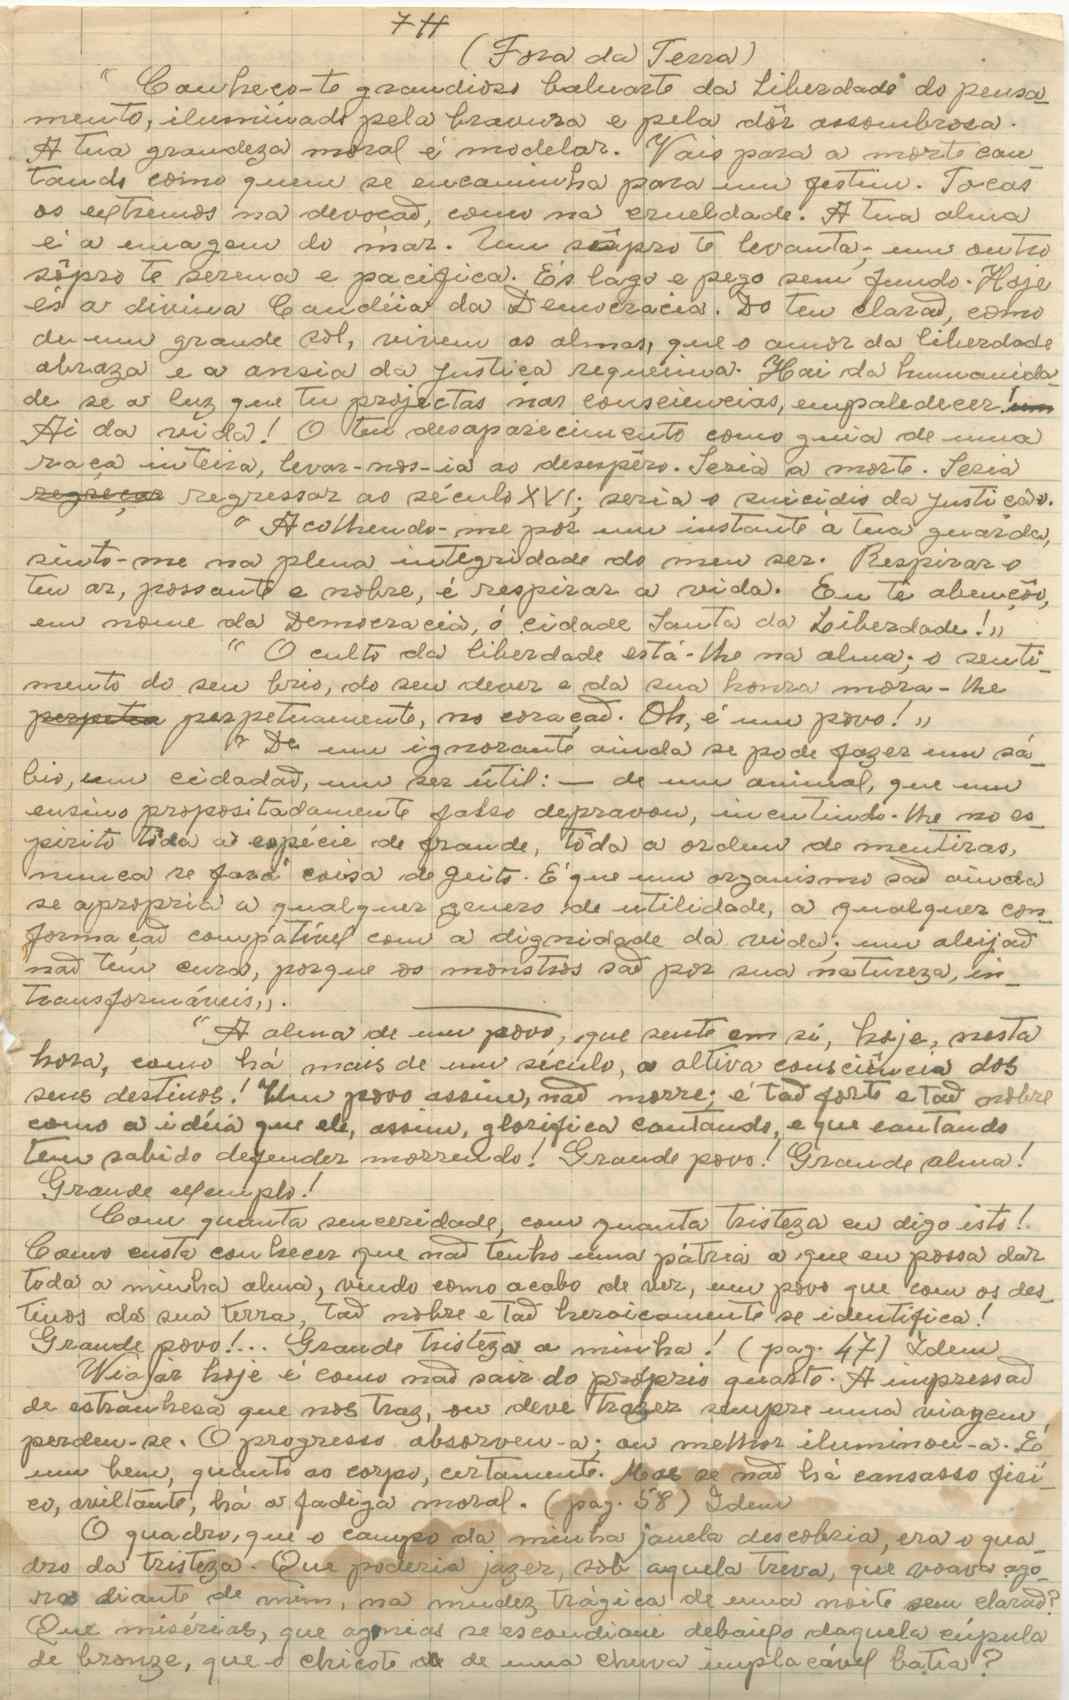 7H
(Fora da Terra)
" Conheço-te grandioso baluarte da Liberdade do pensa-
mento, iluminado pela bravura e pela dôr assombrosa.
A tua grandeza moral é modelar. Vais para a morte can-
tando como quem se encaminha para um festim. Tocas
os extremos na devoção, como na crueldade. A tua alma
é a imagem do mar. Um sôpro te levanta; um outro
sôpro te serena e pacifica. És lago e pego sem fundo. Hoje
és a divina Candeia da Democracia. Do teu clarão, como
de um grande sol, vivem as almas, que o amor da liberdade
abraza e a ansia da justiça requeima. Hai da humanida-
de se a luz que tu projectas nas consciencias, empaledecer! um
Ai da vida! O teu desaparecimento como guia de uma
raça inteira, levar-nos-ia ao desespêro. Seria a morte. Seria
regreçar regressar ao século XVI; seria o suicidio da justiça.
" Acolhendo-me por um instante à tua guarda,
sinto-me na plena integridade do meu ser. Respirar o
teu ar, possante e nobre, é respirar a vida. Eu te abençôo,
em nome da Democracia, ó cidade Santa da Liberdade!"
" O culto da liberdade está-lhe na alma; o senti-
mento do seu brio, do seu dever e da sua honra mora-lhe
perpetua perpetuamente, no coração. Oh, é um povo!"
" De um ignorante ainda se pode fazer um sá-
bio, um cidadão, um ser útil: — de um animal, que um
ensino propositadamente falso depravou, incutindo-lhe no es-
pirito tôda a espécie de fraude, tôda a ordem de mentiras,
nunca se fará coisa de geito. É que um organismo são ainda
se apropria a qualquer genero de utilidade, a qualquer con-
formação compatível com a dignidade da vida; um aleijão
não tem cura, porque os monstros são por sua natureza, in-
transformáveis".
" A alma de um povo, que sente em si, hoje, nesta
hora, como há mais de um século, a altiva consciência dos
seus destinos! Um povo assim, não morre; é tão forte e tão nobre
como a idéia que ele, assim, glorifica cantando, e que cantando
tem sabido defender morrendo! Grande povo! Grande alma!
Grande exemplo!
Com quanta senceridade, com quanta tristeza eu digo isto!
Como custa conhecer que não tenho uma pátria a que eu possa dar
toda a minha alma, vendo como acabo de ver, um povo que com os des-
tinos da sua terra, tão nobre e tão heroicamente se identifica!
Grande povo!... Grande tristeza a minha! (pag. 47) Idem
Viajar hoje é como não sair do próprio quarto. A impressão
de estranhesa que nos traz, ou deve trazer sempre uma viagem,
perdeu-se. O progresso absorveu-a; ou melhor iluminou-a. É
um bem, quanto ao corpo, certamente. Mas se não há cansasso fisi-
co, aviltante, há a fadiga moral. (pag. 58) Idem
O quadro, que o campo da minha janela descobria, era o qua-
dro da tristeza. Que poderia jazer, sob aquela treva, que voava ago-
ra diante de mim, na mudez trágica de uma noite sem clarão?
Que misérias, que agonias se escondiam debaixo daquela cúpula
de bronze, que o chicote de uma chuva implacável batia?